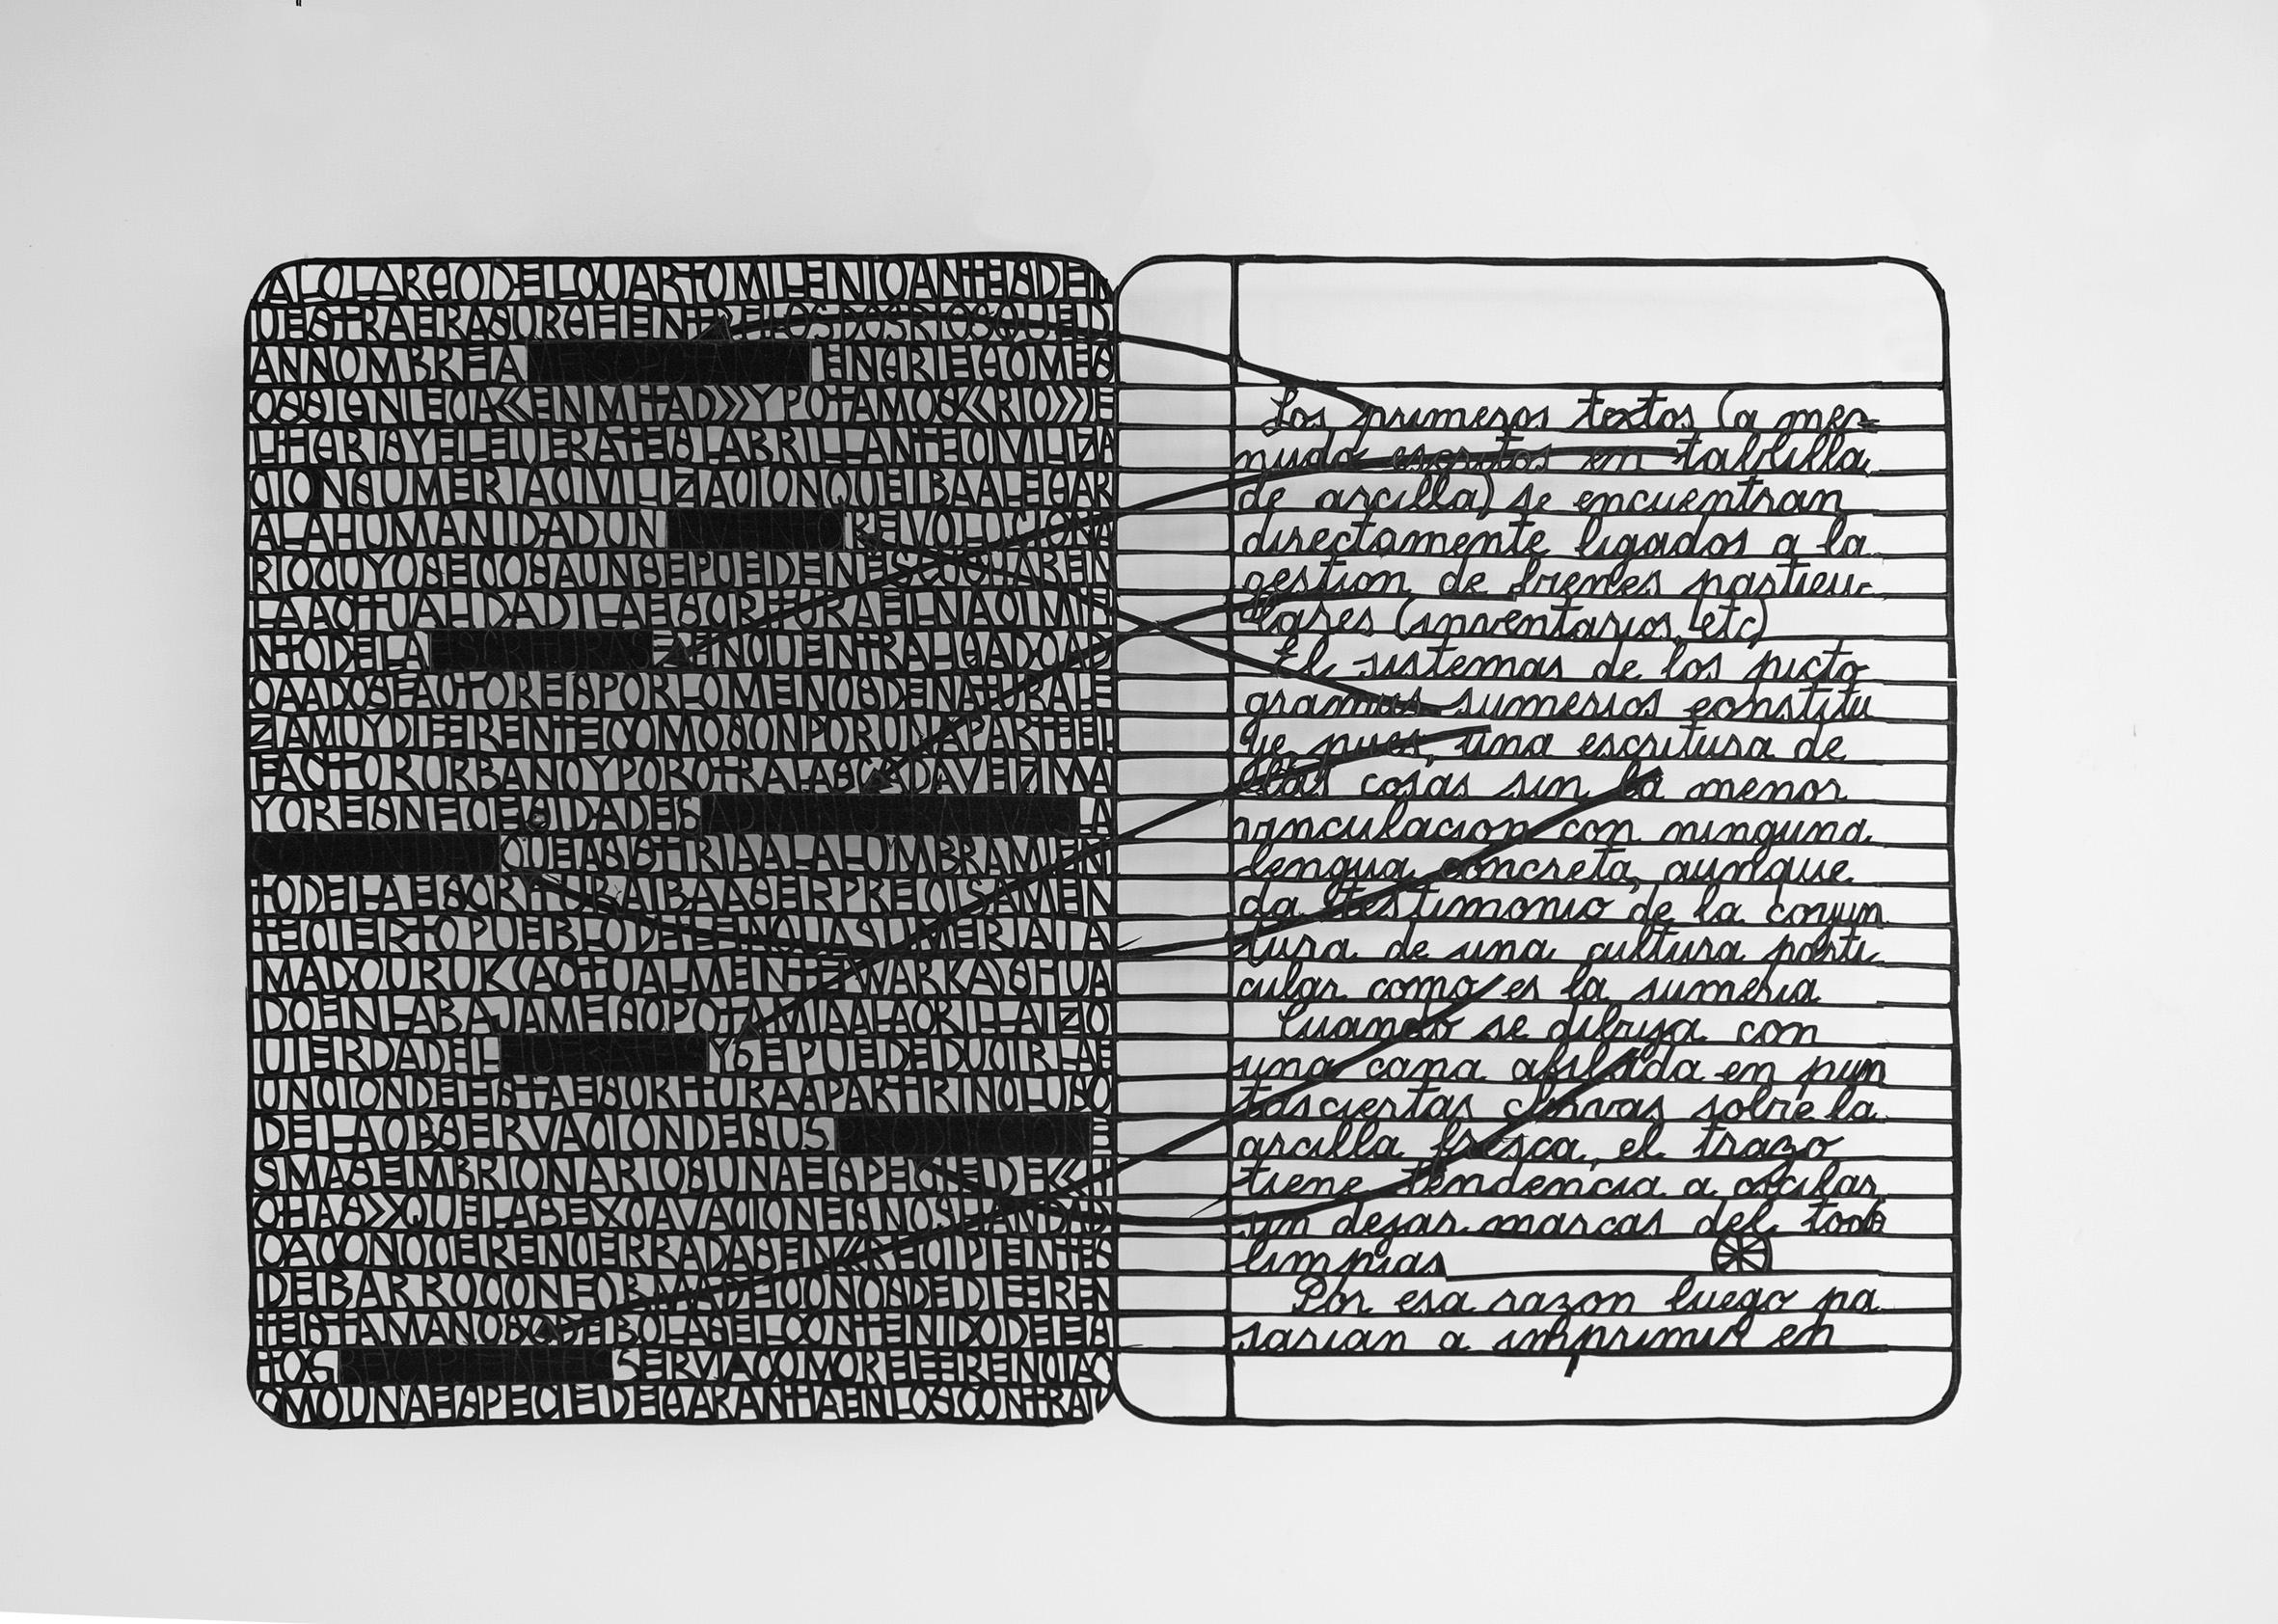 ALOLARGODELCUARTOMILENIOANTESDEN
UESTRAERASURGEENTRELOSDOSRIOSQUED
ANNOMBREA MESOPOTAMIA ENGRIEGOMES
OSSIGNIFICA<<ENMITAD>>YPOTAMOS<<RIO>>E
LTIGRISYELEUFRATESLABRILLANTECIVILIZA
CIONSUMERIACIVILIZACIONQUEIBAALEGAR
ALAHUMANIDADUN INVENTO REVOLUCIONA
RIOCUYOSECOSAUNSEPUEDENESCUCHAREN
LAACTUALIDADLAESCRITURAELNACIMIE
NTODELA ESCRITURASE ENCUENTRALIGADOAD
OAADOSFACTORESPORLOMENOSDENATURALE
ZAMUYDIFERENTECOMOSONPORUNAPARTEEL
FACTORURBANOYPOROTRALASCADAVEZMA
YORESNECESIDADES ADMINISTRATIVAS LA
COMUNIDAD QUEASISTIRIAALALUMBRAMIEN
TODELAESCRITURAIBAASERPRECISAMEN
TECIERTOPUEBLODEESENCIASUMERIALLA
MADOURUK(ACTUALMENTEWARKA)SITUA
DOENLABAJAMESOPOTAMIAALAORILLAIZQ
UIERDADEL EUFRATES YSEPUEDEDUCIRLAF
UNCIONDEESTAESCRITURAAPARTIRINCLUSO
DELAOBSERVACIONDESUS PRODUCCIONE
SMASEMBRIONARIOSUNAESPECIEDE<<FI
CHAS>>QUELASEXCAVACIONESNOSHANDAD
OACONOCERENCERRADASENRECIPIENTES
DEBARROCONFORMADECONOSDEDIFEREN
TESTAMANOSODEBOLASELCONTENIDODEES
TOS RECIPIENTES SERVIACOMOREFERENCIAC
OMOUNAESPECIEDEGARANTIAENLOSCONTRATO
Los primeros textos (a me-
nudo escritos en tablilla
de arcilla) se encuentran
directamente ligados a la
gestion de bienes particu-
lares (inventarios, etc)
El sistemas de los picto
gramas sumerios constitu
ye pues, una escritura de
las cosas sin la menor
vinculacion con ninguna
lengua concreta, aunque
da testimonio de la coyun
tura de una cultura parti
cular como es la sumeria
Cuando se dibuja con
una cana afilada en pun
tas ciertas curvas sobre la
arcilla fresca, el trazo
tiene tendencia a oscilar
sin dejar marcas del todo
limpias
Por esa razon luego pa
sarian a imprimir en